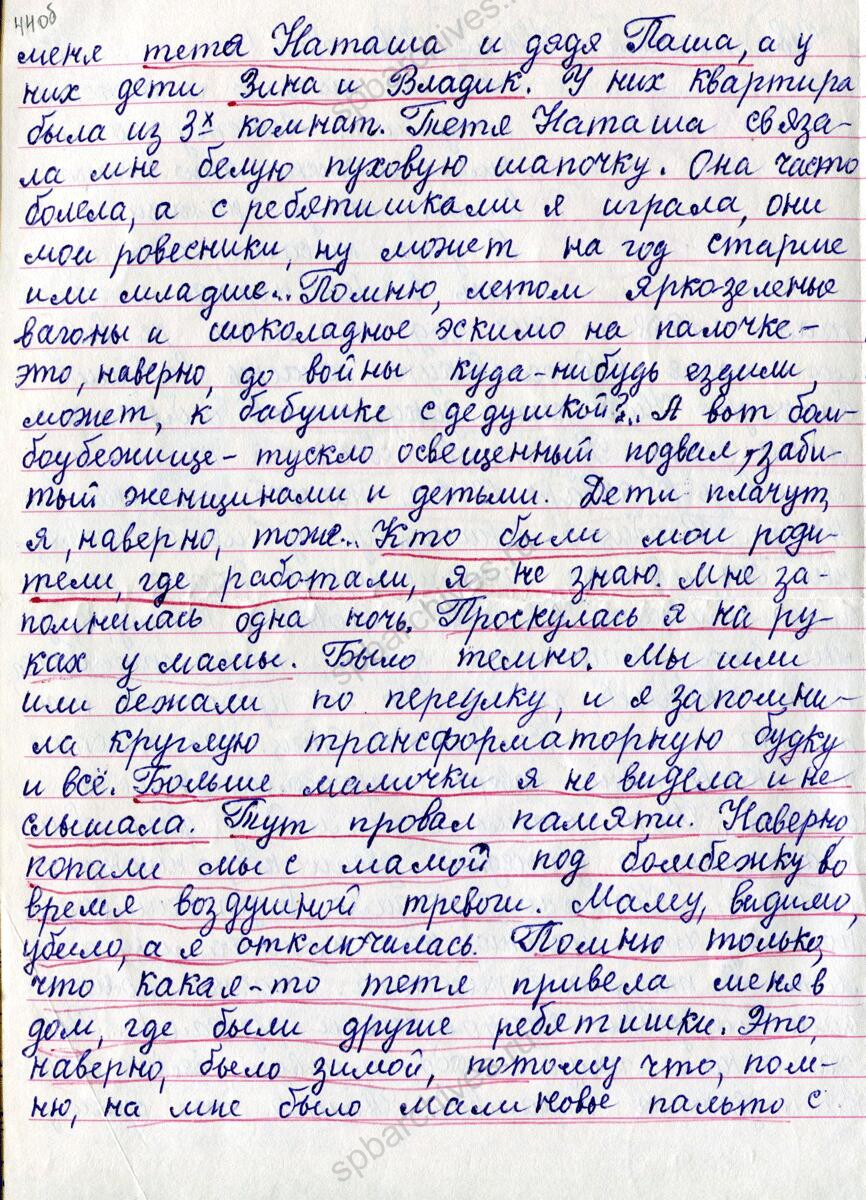 44об
меня тетя Наташа и дядя Паша, а у
них дети Зина и Владик. У них квартира
была из 3х комнат. Тетя Наташа связа-
ла мне белую пуховую шапочку. Она часто
болела, а с ребятишками я играла, они
мои ровесники, ну может на год старше
или младше... Помню, летом ярко-зеленые
вагоны и шоколадное эскимо на палочке -
это, наверно, до войны куда-нибудь ездили,
может, к бабушке с дедушкой?.. А вот бом-
боубежище - тускло освещенный подвал, заби-
тый женщинами и детьми. Дети плачут,
я, наверно, тоже... Кто были мои роди-
тели, где работали, я не знаю. Мне за-
помнилась одна ночь. Проснулась я на ру-
ках у мамы. Было темно. Мы шли
или бежали по переулку, и я запомни-
ла круглую трансформаторную будку
и всё. Больше мамочки я не видела и не
слышала. Тут провал памяти. Наверно
попали мы с мамой под бомбежку во
время воздушной тревоги. Маму, видимо,
убило, а я отключилась. Помню только,
что какая-то тетя привела меня в
дом, где были другие ребятишки. Это,
наверно, было зимой, потому что, пом-
ню, на мне было малиновое пальто с
spbarchives.ru
spbarchives.ru
spbarchives.ru